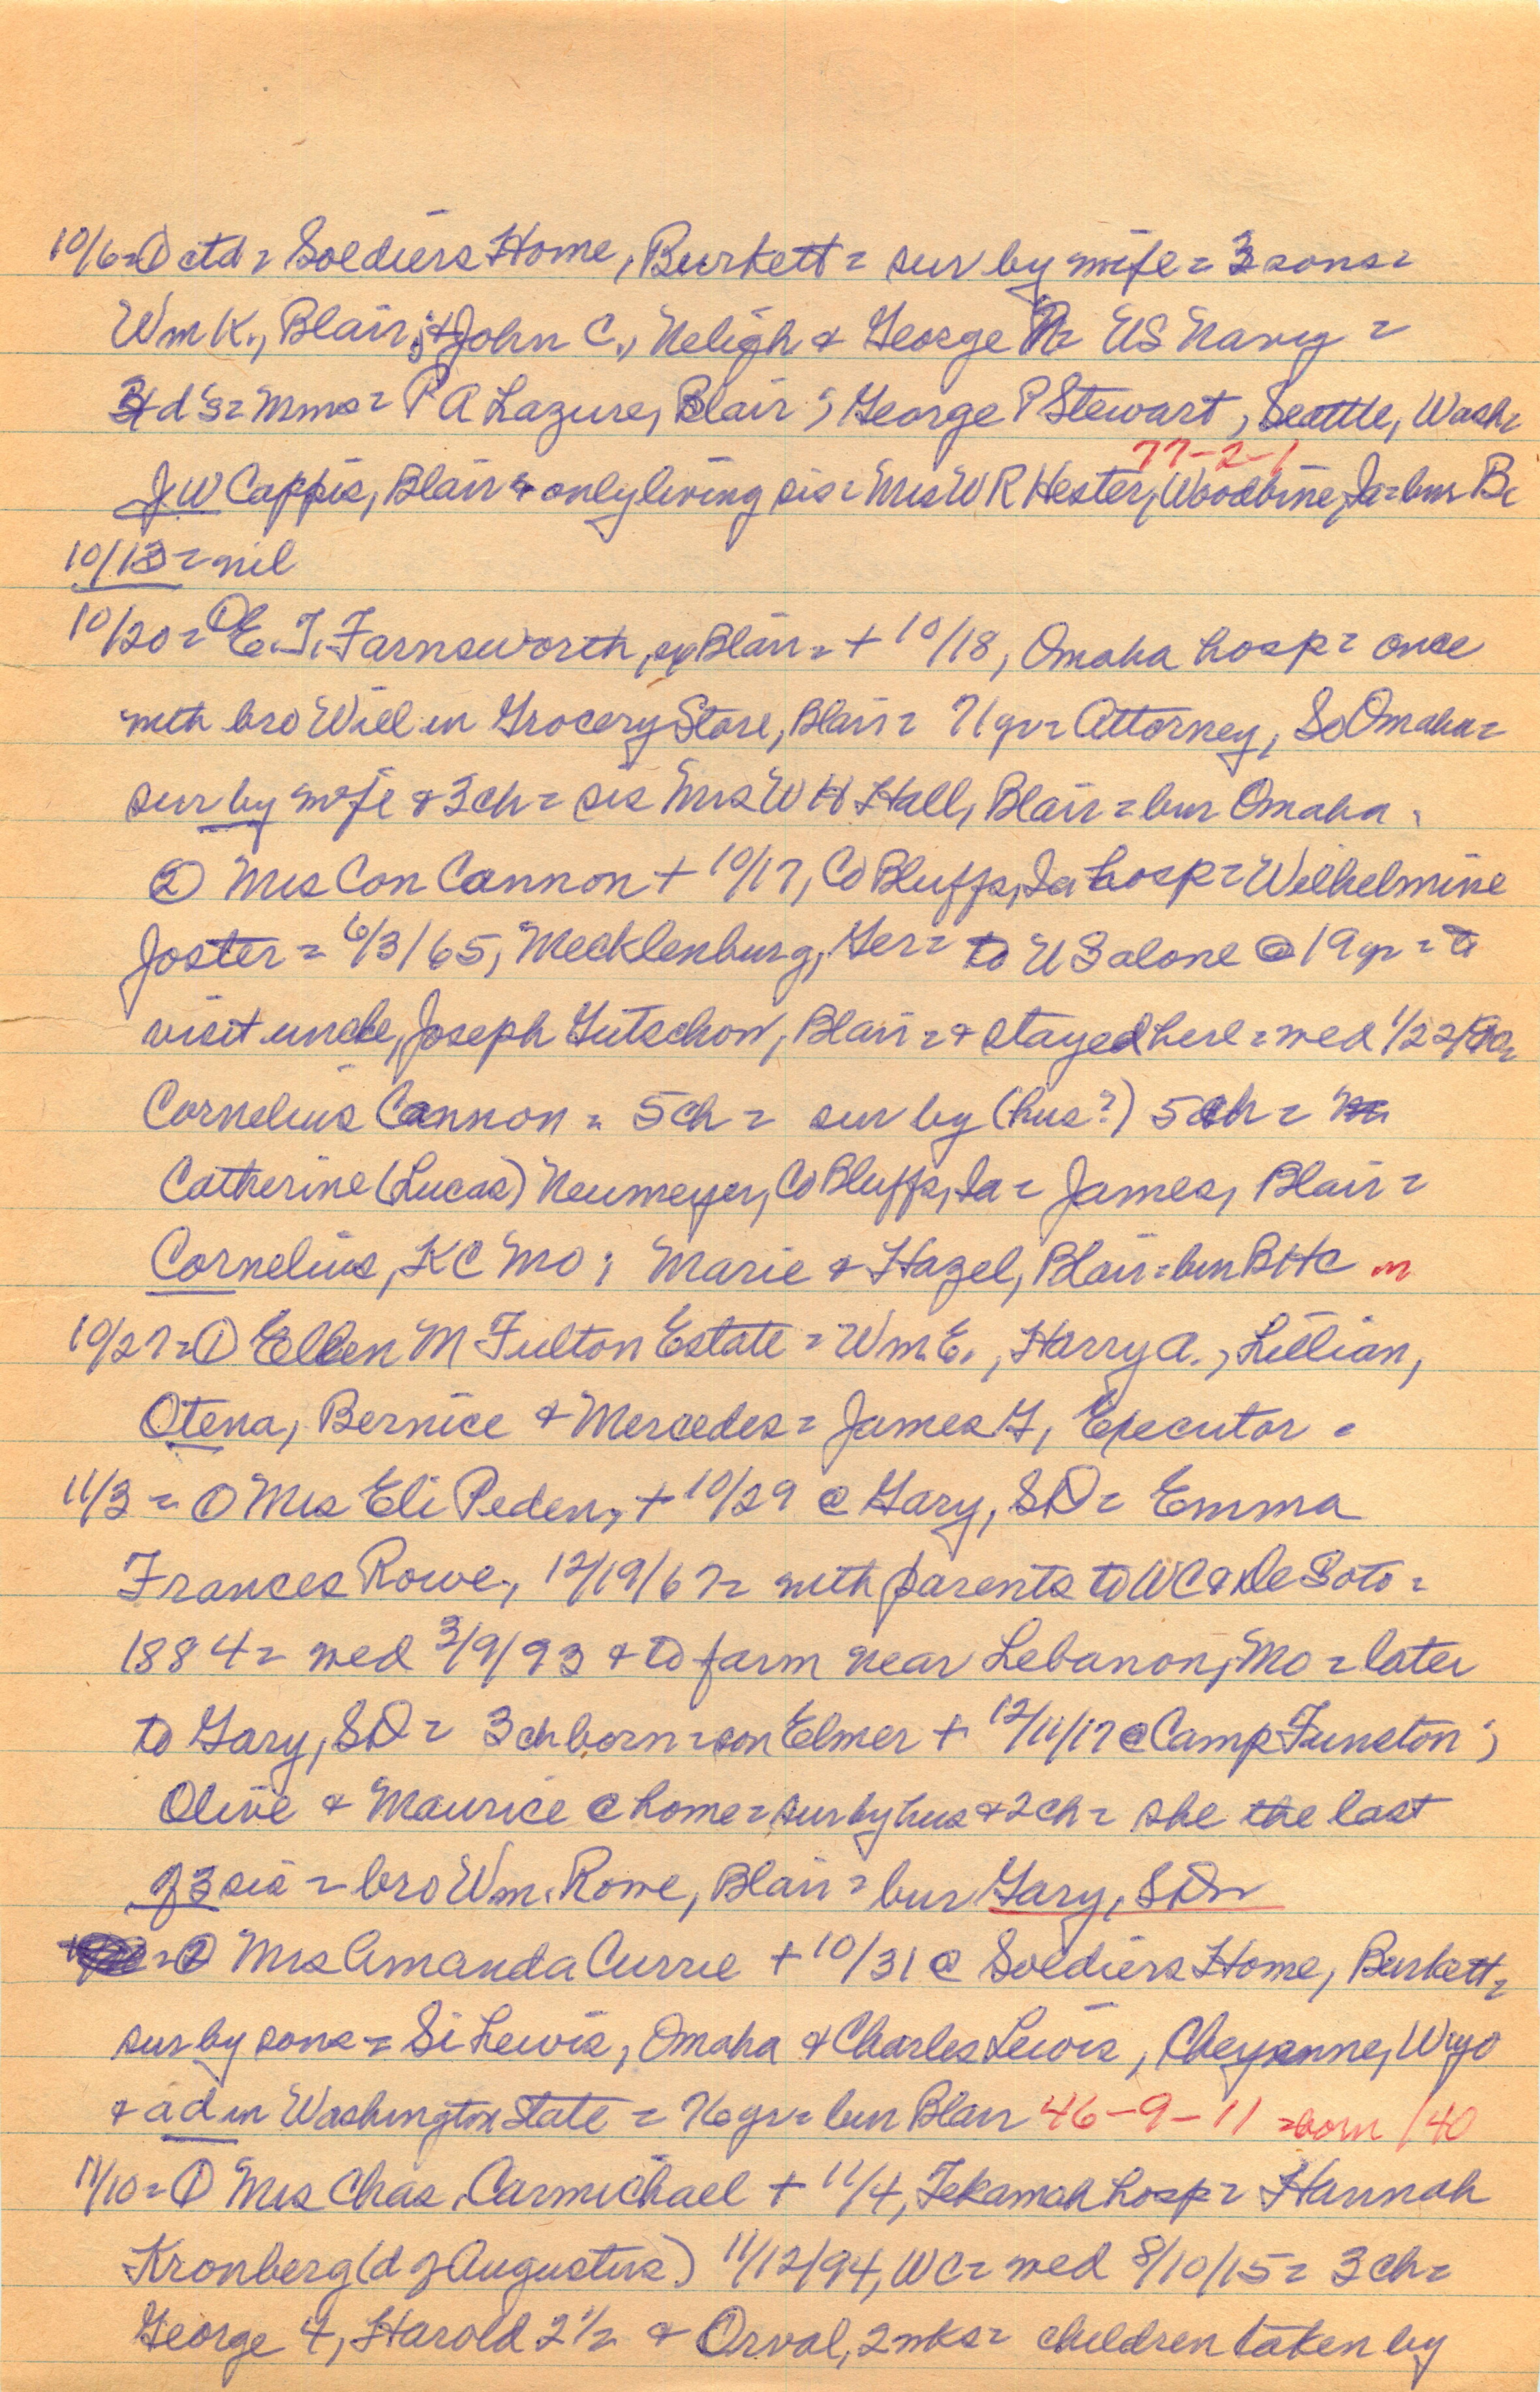 10/6=① ctd= Soldiers Home, Burkett= sur by wife= 3 sons=
Wm K., Blair; & John C., Neligh & George = US Navy =
3 d's= Mmes= P A Lazure, Blair; George P Stewart, Seattle, Wash=
77-2-1
J W Cappis, Blair & only living sis= Mrs W R Hester, Woodbine, Ia= bur Bc
10/13= nil
10/20= ① E. T. Farnsworth, ex Blair= + 10/18, Omaha hosp= once
with bro Will in Grocery Store, Blair= 71 yr= Attorney, So Omaha=
sur by wife & 3 ch= sis Mrs W H Hall, Blair= bur Omaha.
② Mrs Con Cannon + 10/17, Co Bluffs, Ia hosp= Wilhelmine
Joster= 6/3/65, Mecklenburg, Ger= to US alone @ 19 yr= to
visit uncle, Joseph Gutschow, Blair= & stayed here= wed 1/22/90=
Cornelius Cannon= 5 ch= sur by (hus?) 5 ch=
Catherine (Lucas) Neumeyer, Co Bluffs, Ia= James, Blair=
Cornelius, KC Mo; Marie & Hazel, Blair= bur BHC m
10/27= ① Ellen M Fulton Estate= Wm. E., Harry A., Lillian,
Otena, Bernice & Mercedes= James G, Executor=
11/3= ① Mrs Eli Peden, + 10/29 @ Gary, SD= Emma
Frances Rowe, 12/19/67= with parents to WC & De Soto=
1884= wed 3/9/93 & to farm near Lebanon, Mo= later
to Gary, SD= 3 ch born= son Elmer + 12/11/17 @ Camp Funston;
Olive & Maurice @ home= sur by hus & 2 ch= she the last
of 3 sis= bro Wm. Rowe, Blair= bur Gary, SD=
= ② Mrs Amanda Currie + 10/31 @ Soldiers Home, Burkett=
sur by sons= Si Lewis, Omaha & Charles Lewis, Cheyenne, Wyo
& a d in Washington State= 76 yr= bur Blair 46-9-11 =born /40
11/10= ① Mrs Chas. Carmichael + 11/4, Tekamah hosp= Hannah
Kronberg (d of Augustus) 11/12/94, WC= wed 8/10/15= 3 ch=
George 4, Harold 2½ & Orval, 2 wks= children taken by